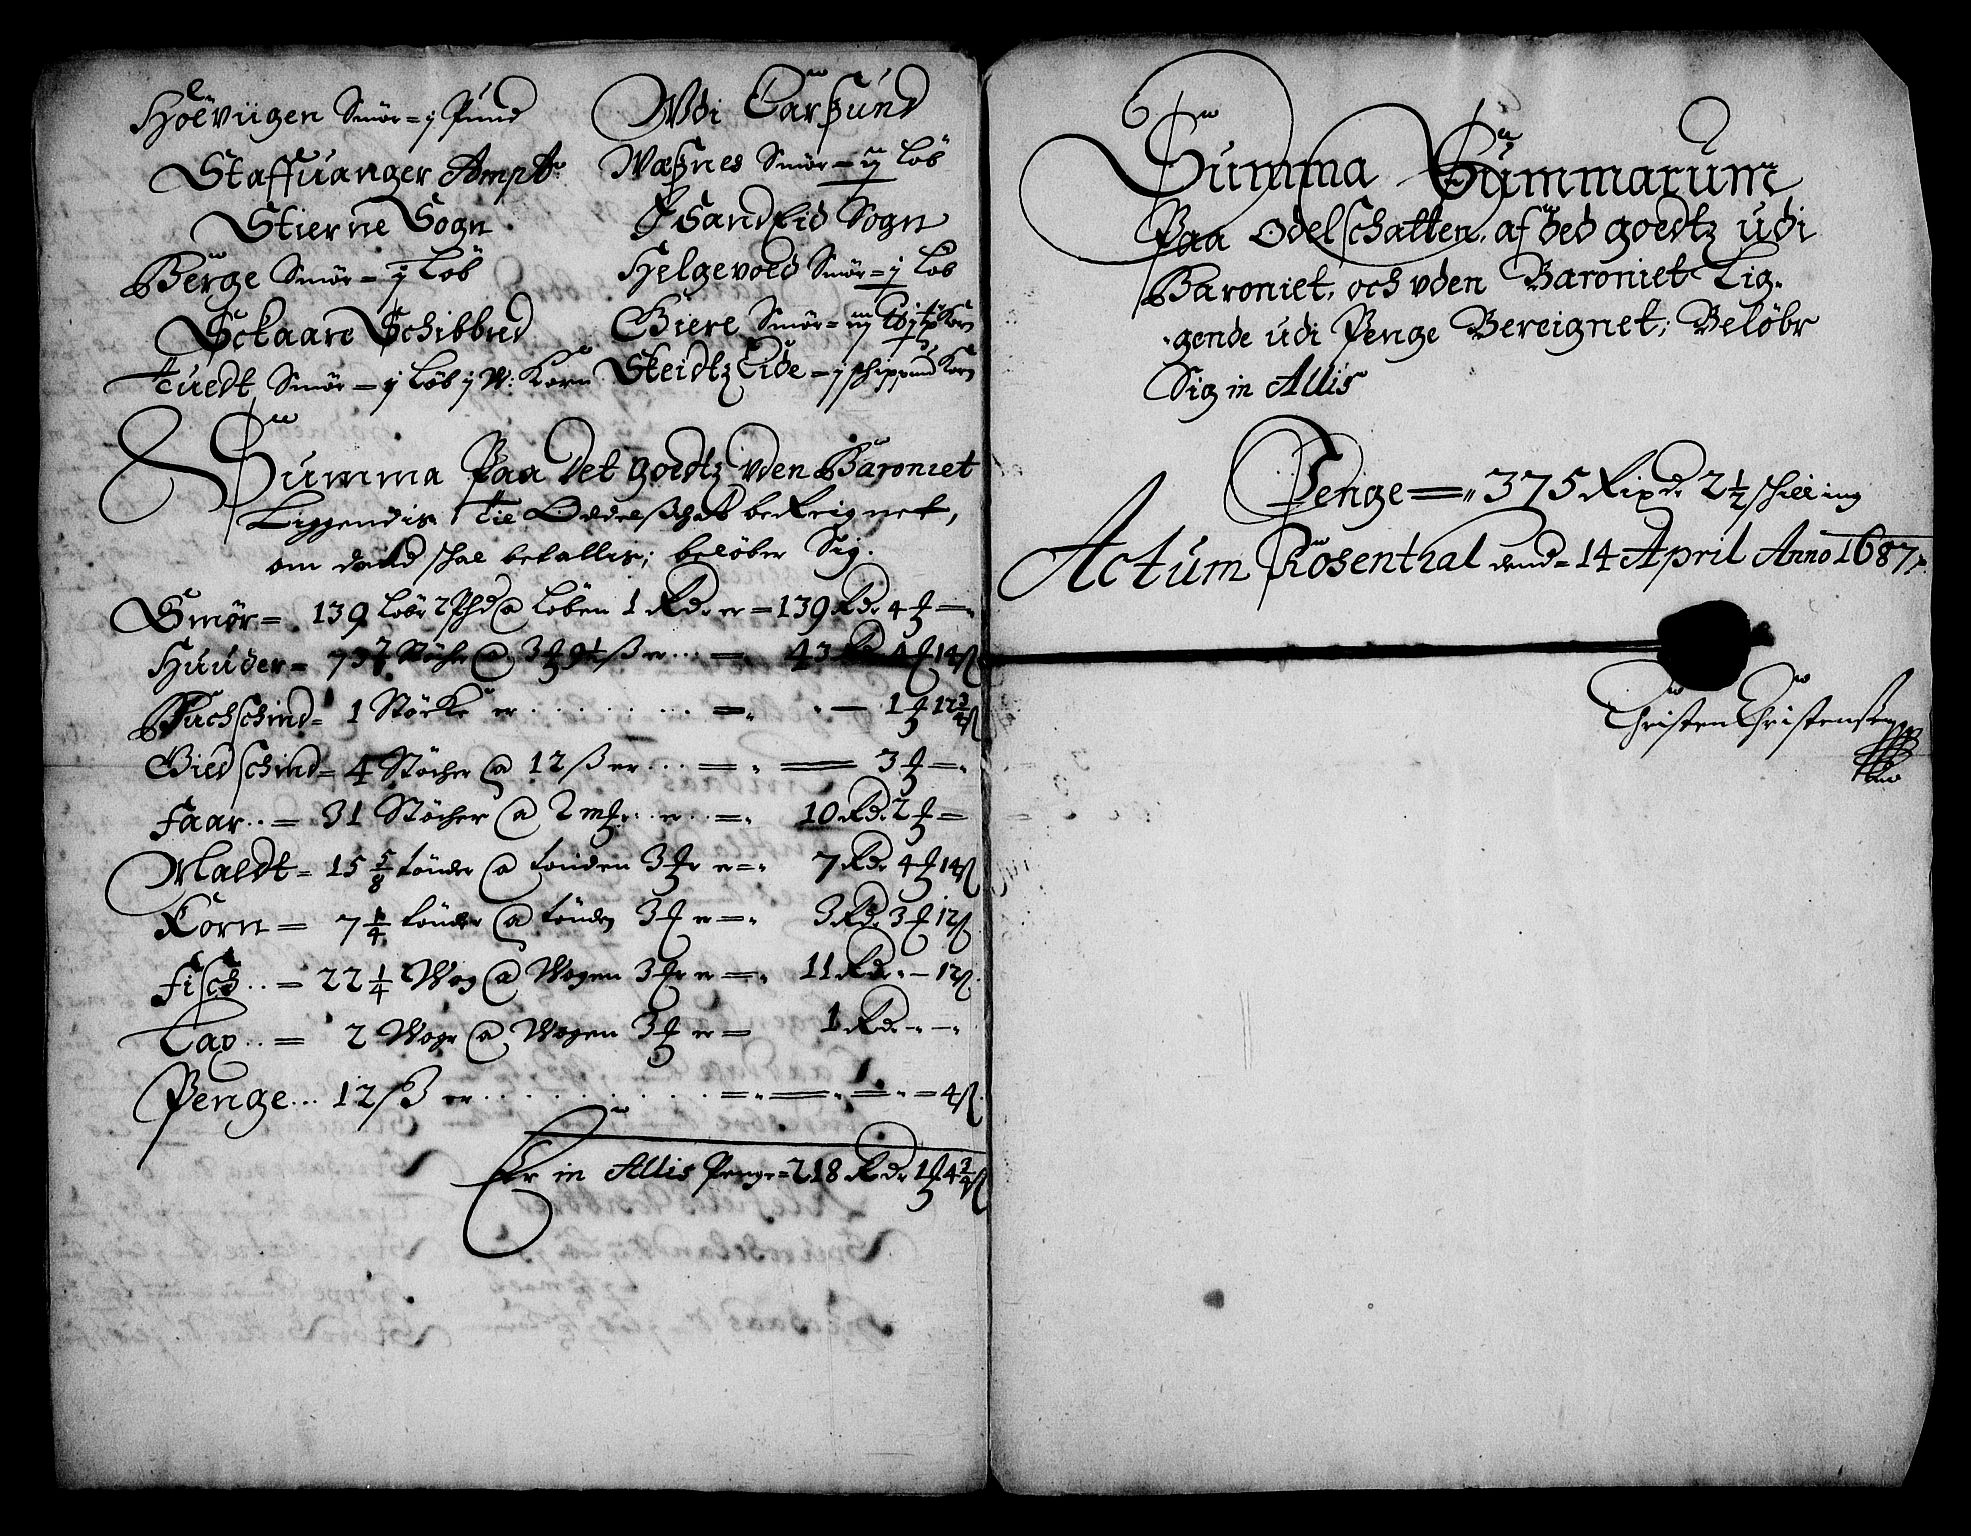 Høeviigen Smör = j Pund
Staffuanger Ampt
Stierne Sogn
Berge Smör = ij Löb
Sckaare Schibbred
Tuedt Smör = ij Löb j W: Korn
Udi Carßund
Waßnes Smör = iij Löb
Sandeid Sogn
Helgevold Smör = ij Löb
Biere Smör = iij Korn
Steidtz Lide = j schippund Korn
Summa Paa det goedtz uden Baroniet
Liggendis til Oddelßschat beReignet,
om dand schal betallis; belöber Sig.
Smör = 139 Löbr 2 Phd @ Löben 1 Rd. er = 139 Rd. 4 ₰ =
Huuder = 73 Stöche @ 3 ₰ er ... = 43 Rd. 4 ₰ 14 ß
Buchschind = 1 Stöcke er ........ = 1 ₰ 12 3/4 ß
Giedschind = 4 Stöcher @ 12 ß er ... = 3 ₰ =
Faar .. = 31 Stöcher @ 2 m₰ .. er .. = 10 Rd. 2 ₰ =
Maldt = 15 5/8 tönder @ tönden 3 ₰ er = 7 Rd. 4 ₰ 14 ß
Korn = 7 1/4 tönder @ tönden 3 ₰ er = 3 Rd. 3 ₰ 12 ß
Fisch .. = 22 1/4 Wog @ Wogen 3 ₰ er = 11 Rd. - 12 ß
Tax .. = 2 Woge @ Wogen 3 ₰ er = 1 Rd. - -
Penge ... 12 ß er .......... = 4 ß
Er in Allis Penge = 218 Rd. 1 ₰ 4 3/4 ß
Summa Summarum
Paa Odelschatten, af ded goedtz udi
Baroniet, och uden Baroniet Lig-
gende udi Penge Bereignet; Belöbr
Sig in Allis
Penge = 375 Rixd. 2 1/2 schilling
Actum Rosenthal dend = 14 April Anno 1687
Christen Christenßen